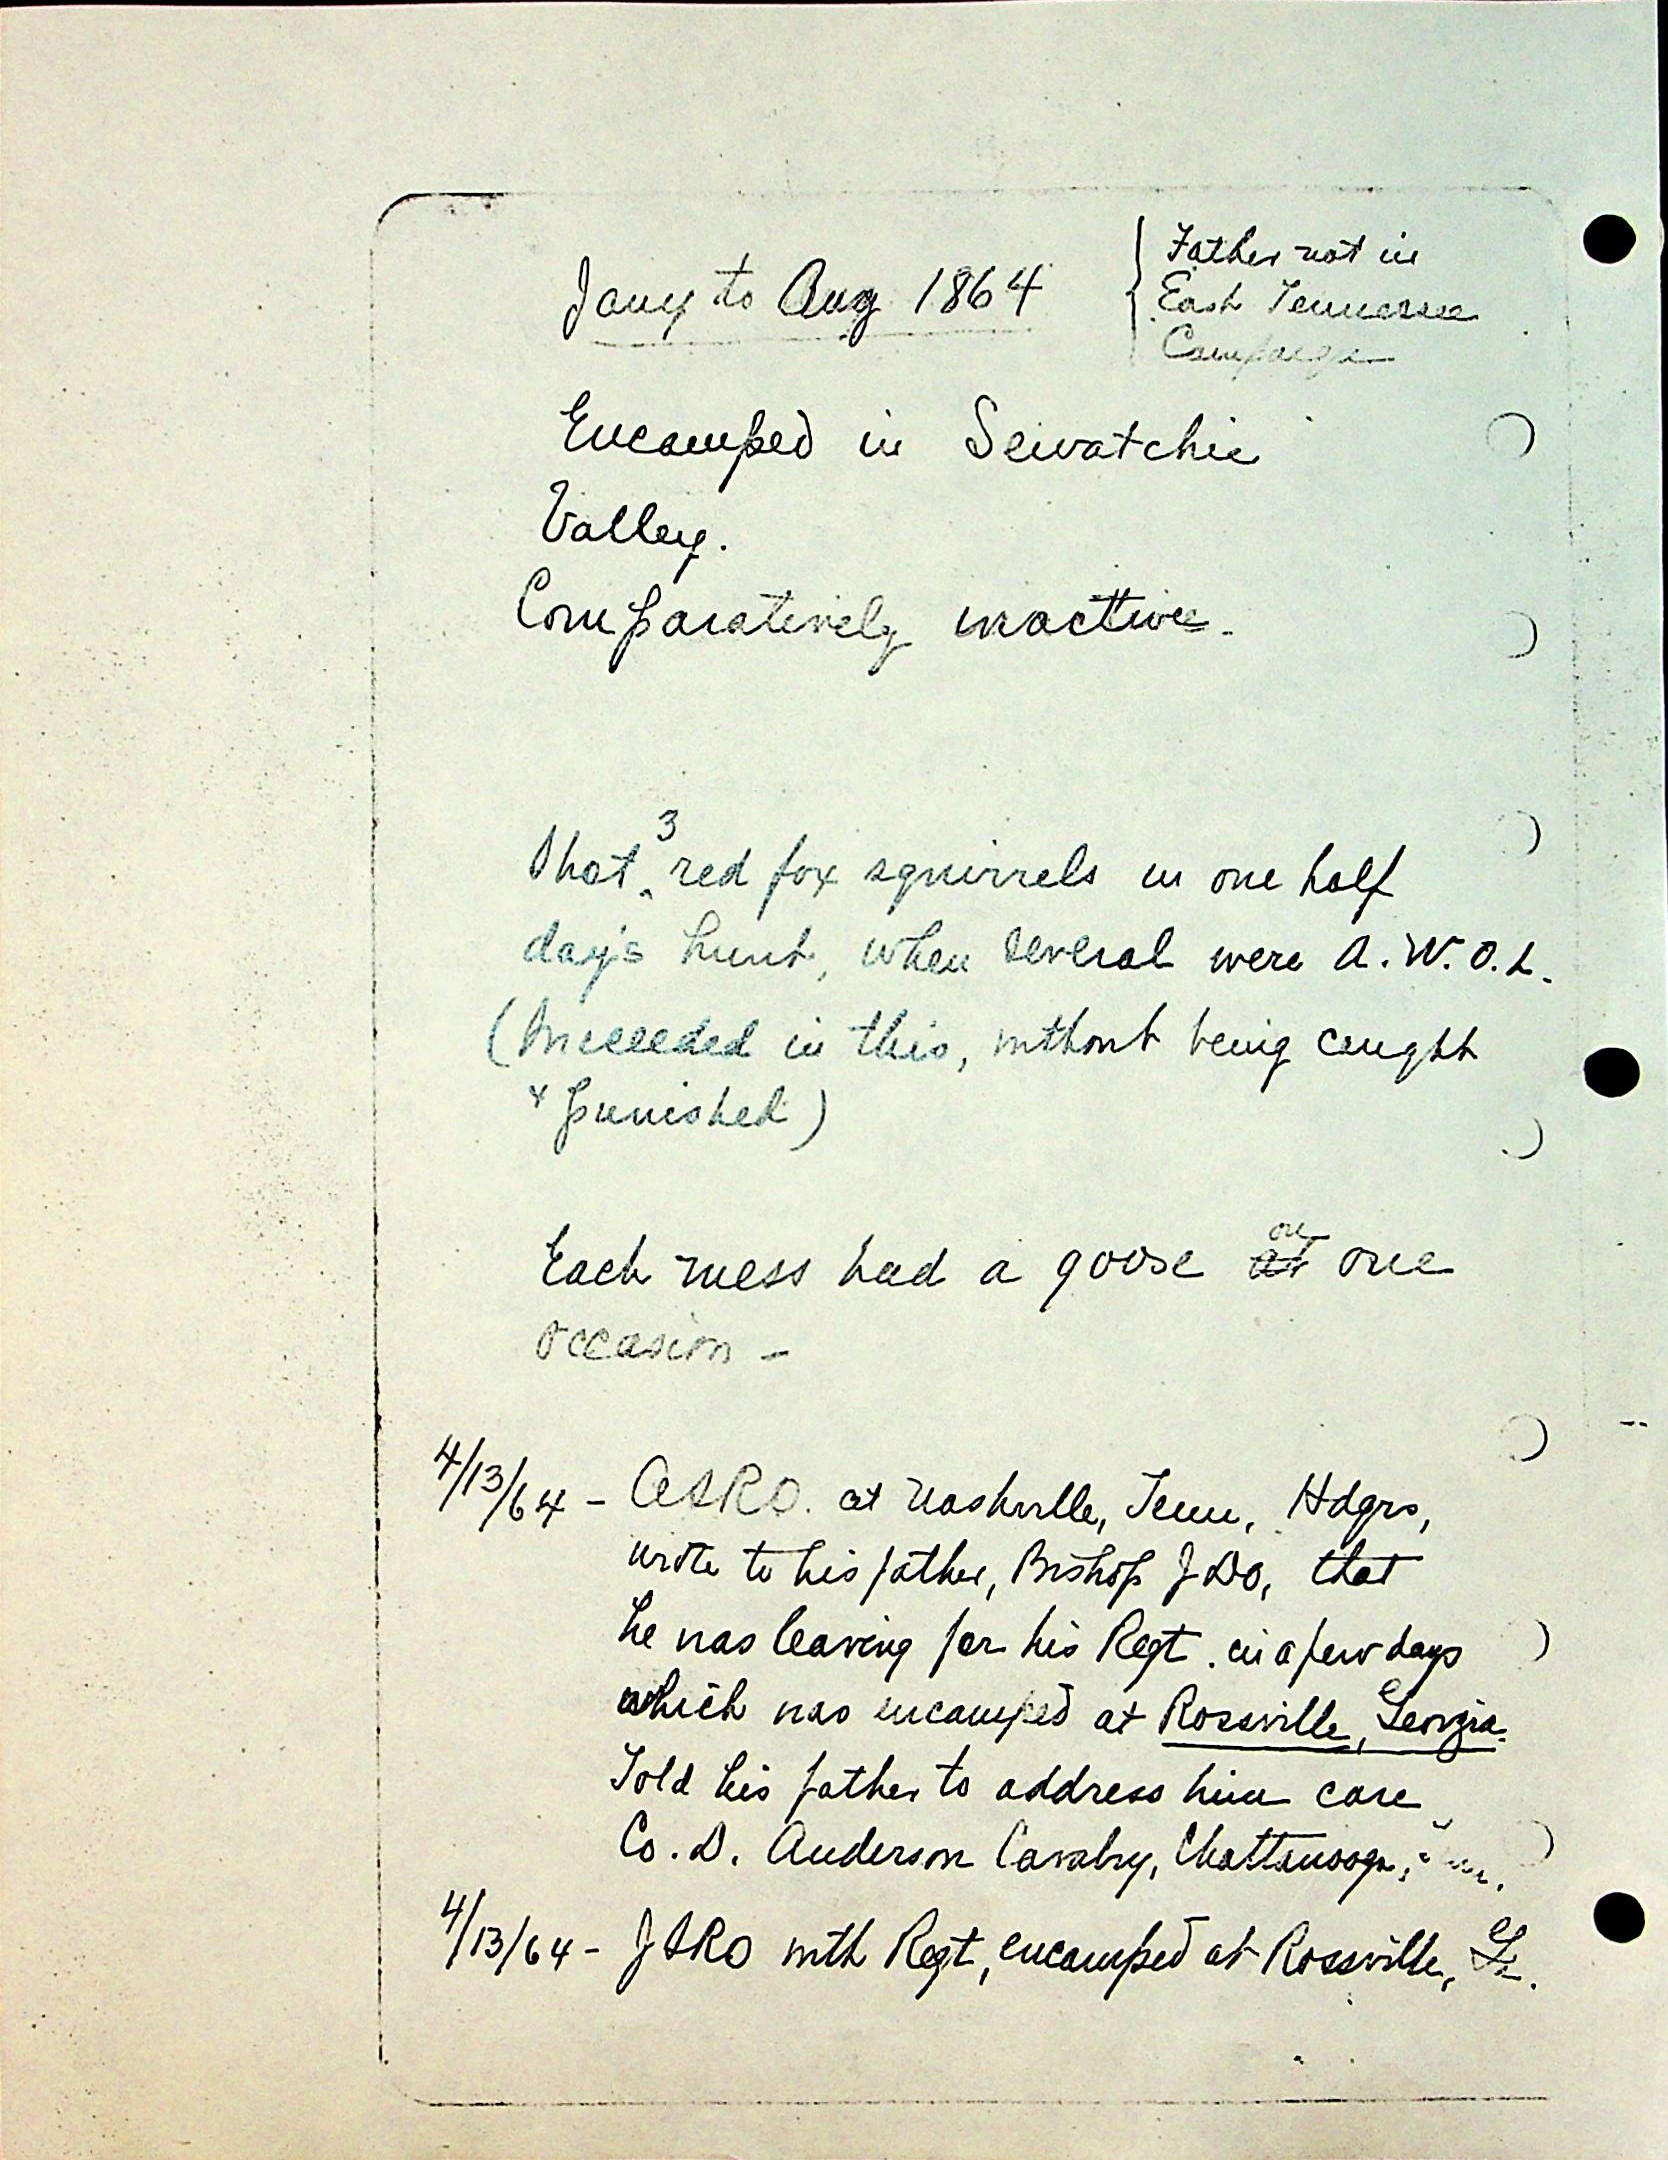 Jany to Aug 1864
{ Father not in
East Tennessee
Campaign
Encamped in Sewatchie
Valley.
Comparatively inactive.
Shot ^3 red fox squirrels in one half
day's hunt, when several were A.W.O.L.
(Succeeded in this, without being caught
& punished)
Each mess had a goose ~~at~~ on one
occasion -
4/13/64 - CSRO. at Nashville, Tenn, Hdqrs,
wrote to his father, Bishop JDO, that
he was leaving for his Regt. in a few days
which was encamped at Rossville, Georgia.
Told his father to address him care
Co. D. Anderson Cavalry, Chattanooga,
4/13/64 - JSRO with Regt, encamped at Rossville, Ga.